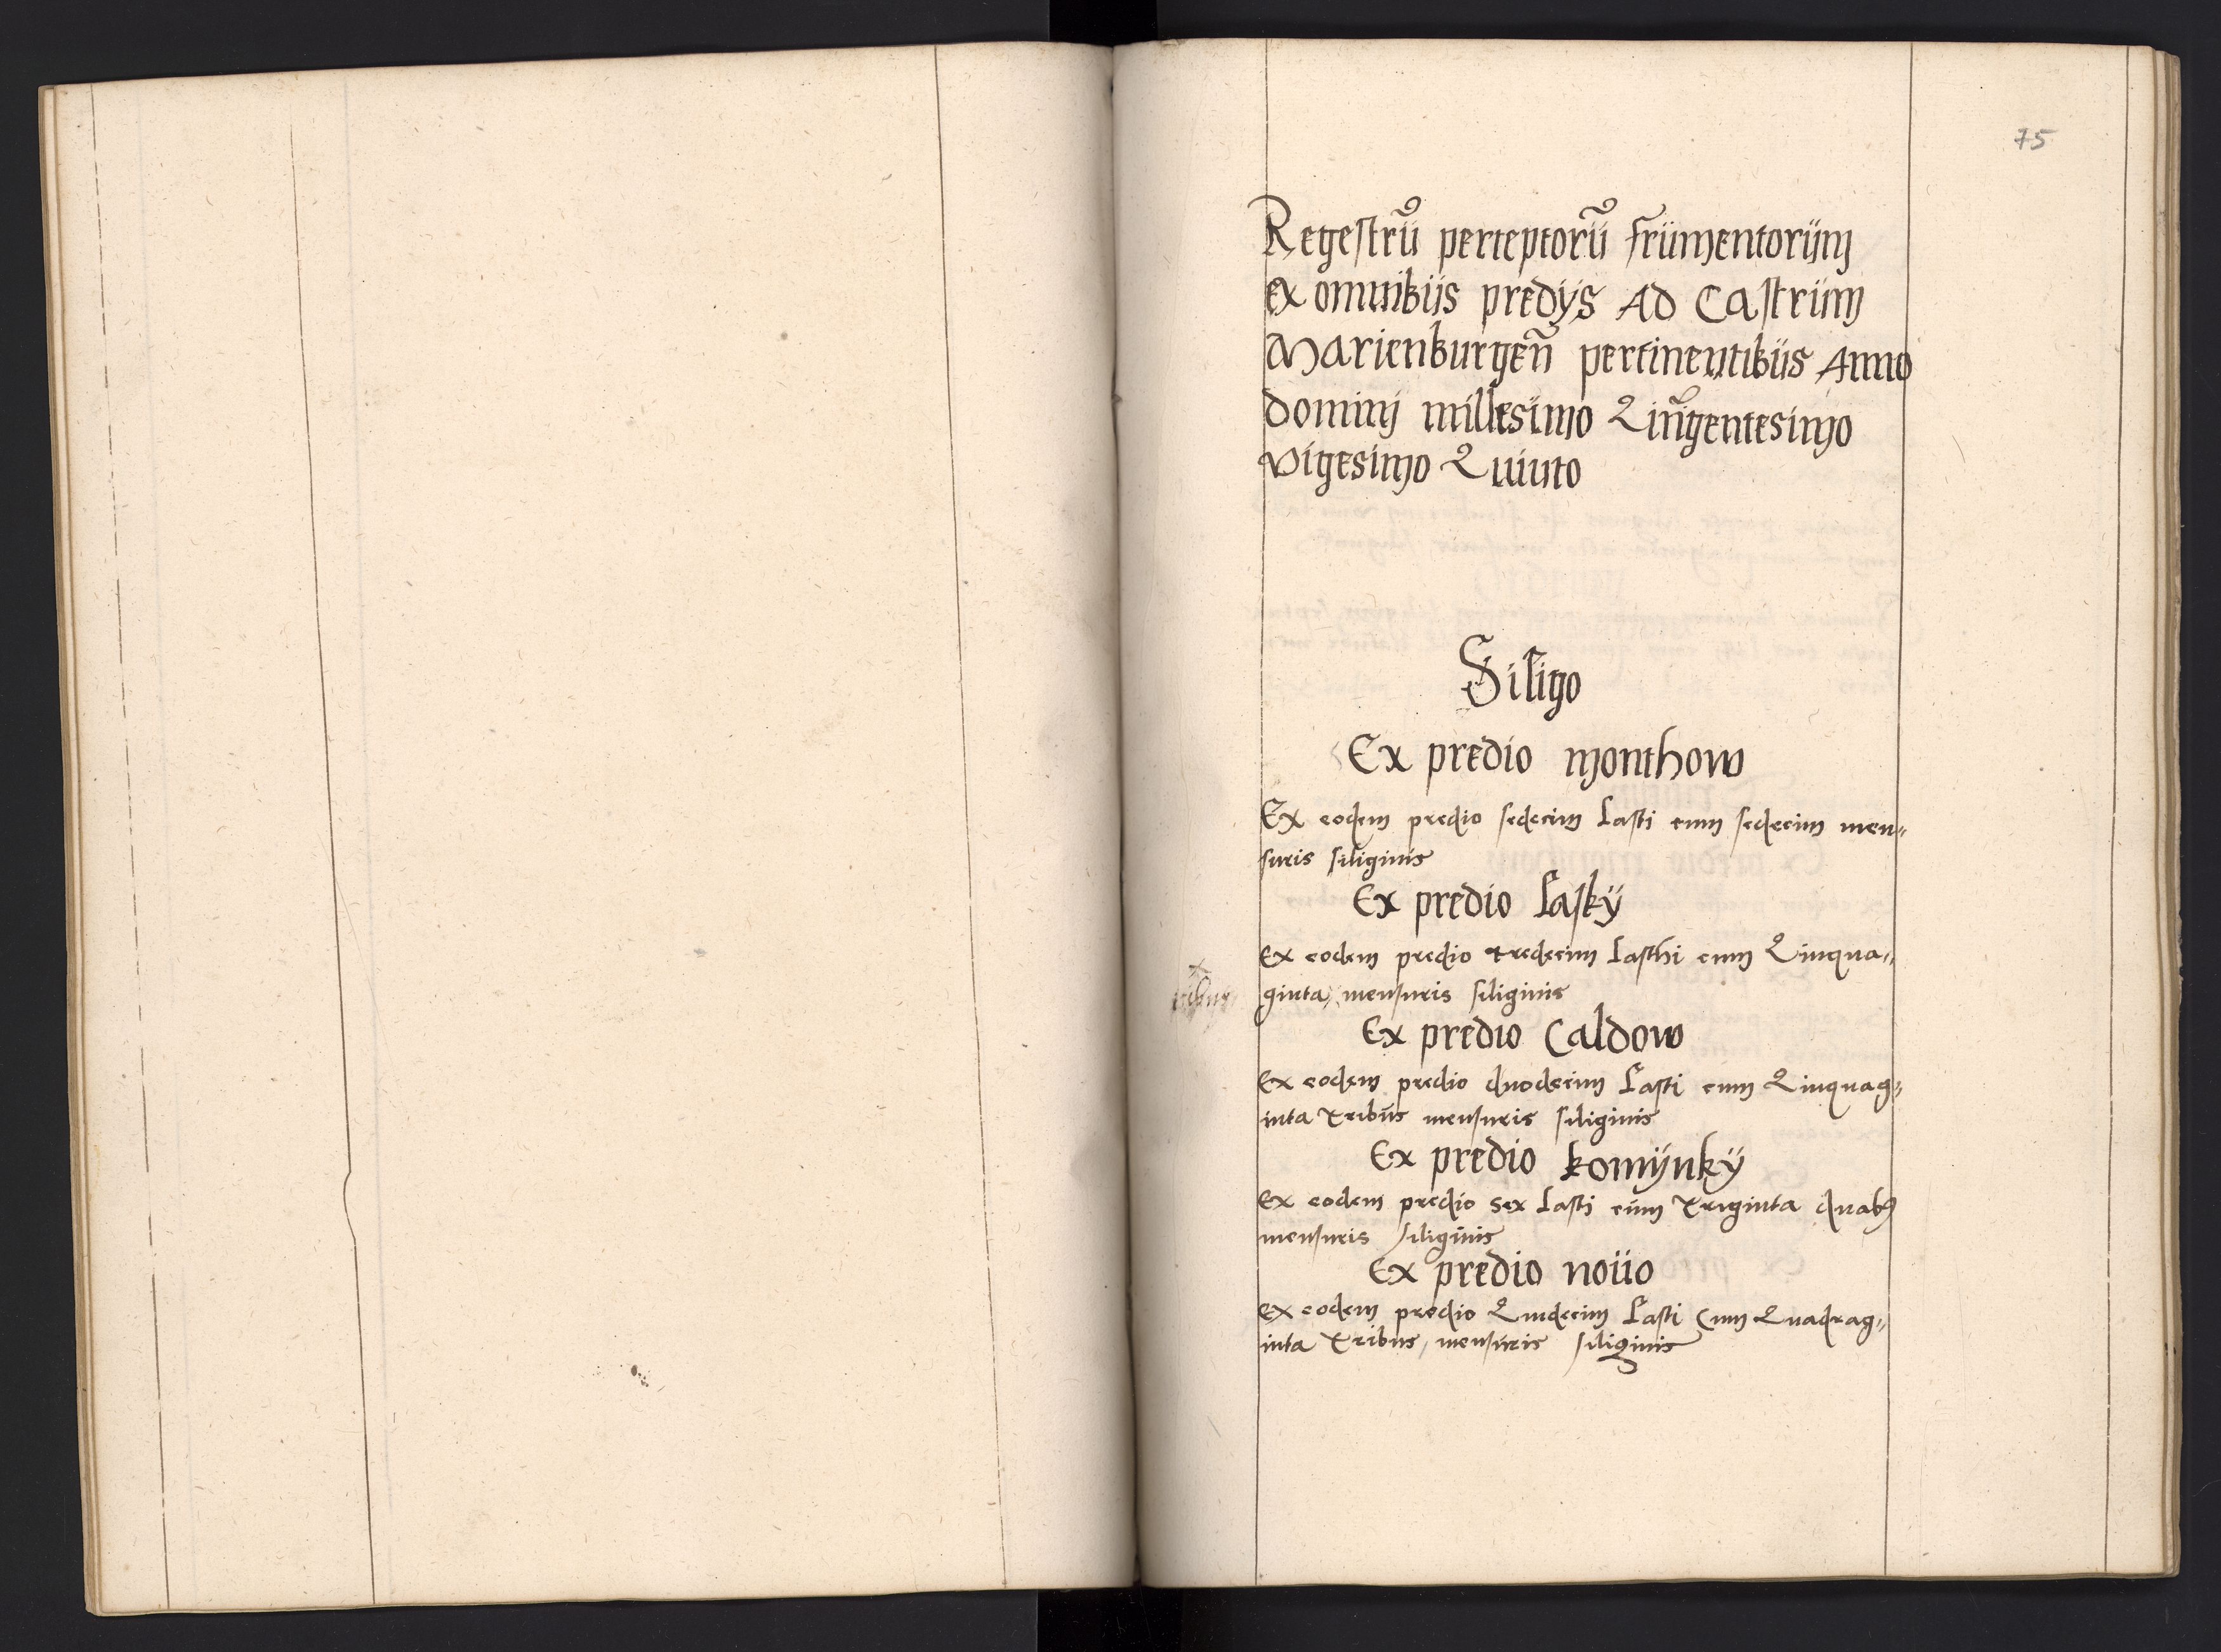 75
Regestrū perceptorū frumentorum
ex omnibus predÿs Ad Castrum
Marienburgeñ pertinentibus Anno
dominj millesimo Qingentesimo
vigesimo Quinto
Siligo
Ex predio monthow
Ex eodem predio sedecim Lasti cum sedecim men„
suris siliginis
Ex predio Laskÿ
Ex eodem predio tredecim Lasthi cum Qinqua„
ginta mensuris siliginis
Ex predio Caldow
Ex eodem predio duodecim Lasti cum Qinquag„
inta tribus mensuris siliginis
Ex predio komÿnkÿ
Ex eodem predio sex Lasti cum triginta duabꝫ
mensuris siliginis
Ex predio nouo
Ex eodem predio Qindecim Lasti Cum Quadrag„
inta tribus, mensuris siliginis